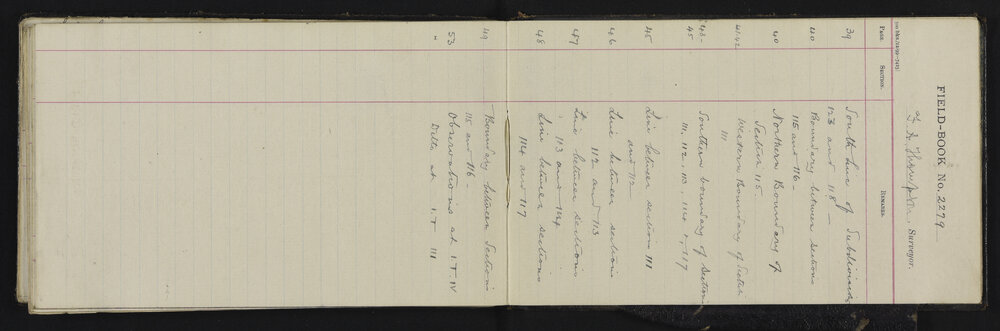 FIELD-BOOK No. 2279
T. N. Thompson Surveyor.
PAGE. SECTION. REMARKS.
39 South Line of Subdivisions
123 and 118 —
40 Boundary between sections
115 and 116 —
40 Northern Boundary of
Section 115.
41-42 Western Boundary of Section
111
43-45 Southern boundary of Section
111, 112, 113, 114 & 117
45 Line between section 111
and 112
46 Line between sections
112 and 113
47 Line between sections
113 and 114
48 Line between sections
114 and 117
49 Boundary between Sections
115 and 116 —
53 Observations at I.T. IV
" Ditto at I.T. III